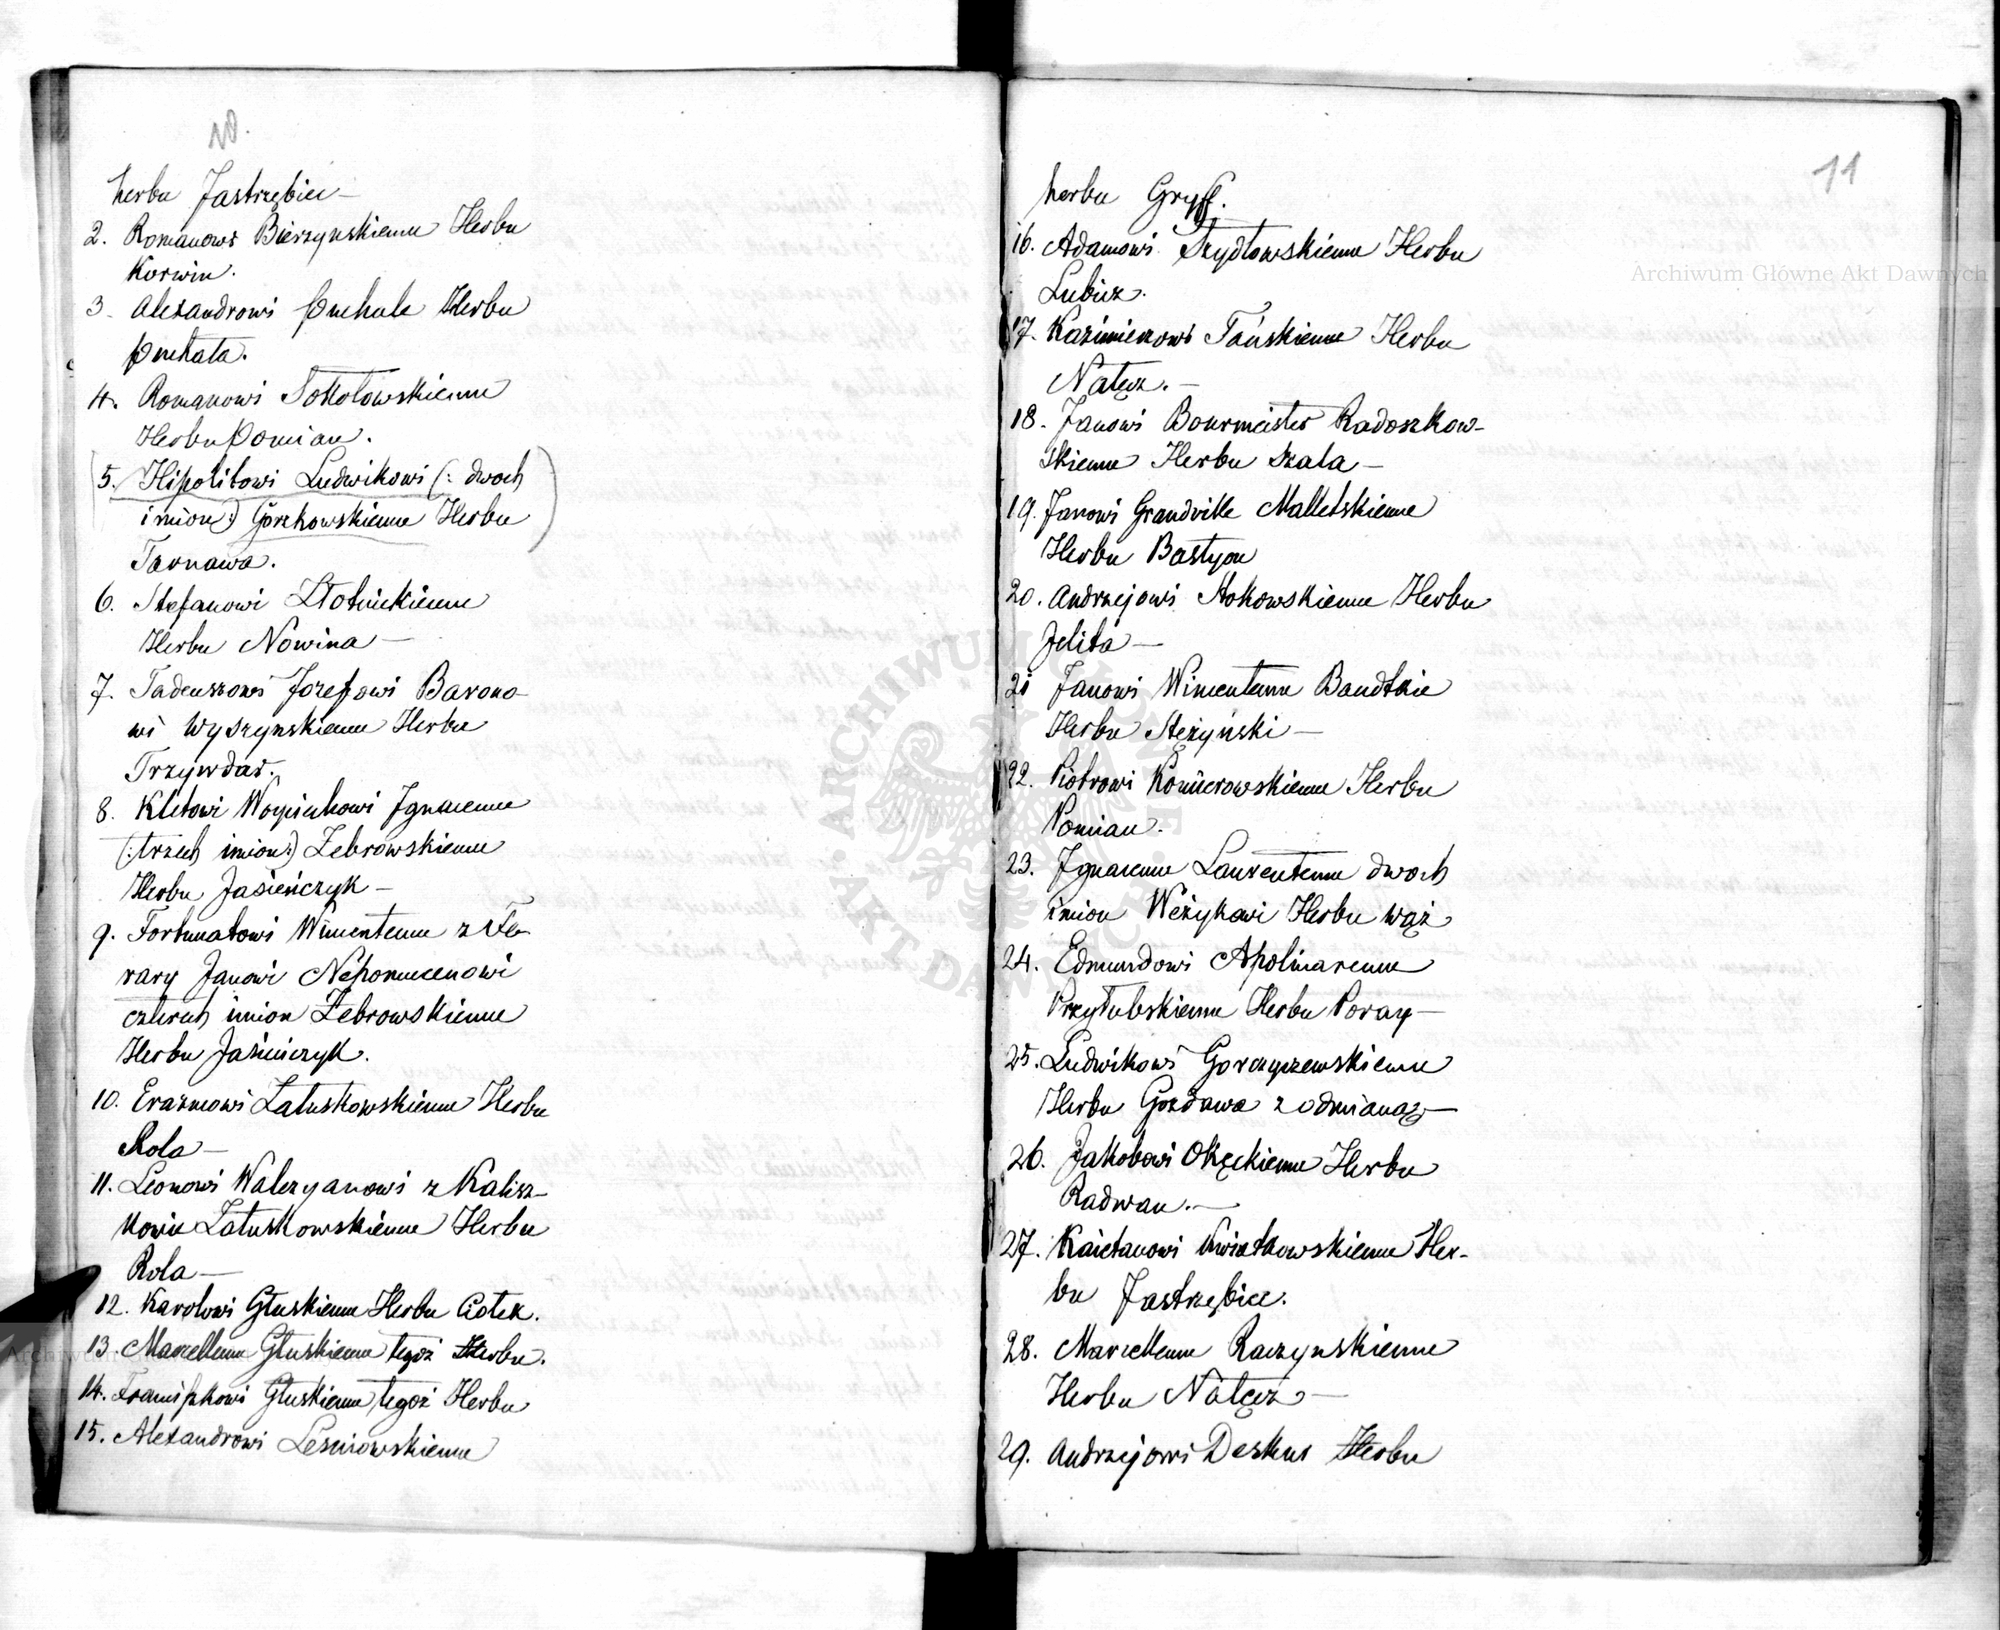 10.
herbu Jastrzębiec —
2. Romanowi Bierzynskiemu Herbu
Korwin.
3. Alexandrowi Puchale Herbu
Puchała.
4. Romanowi Sokołowskiemu
Herbu Pomian.
5. Hipolitowi Ludwikowi (: dwoch
imion:) Gorzkowskiemu Herbu
Tarnawa.
6. Stefanowi Złotnickiemu
Herbu Nowina —
7. Tadeuszowi Jozefowi Barono-
wi Wyszynskiemu Herbu
Trzywdar.
8. Kletowi Woyciechowi Ignacemu
(: trzech imion:) Żebrowskiemu
Herbu Jasieńczyk —
9. Fortunatowi Wincentemu z Fe-
rary Janowi Nepomucenowi
czterech imion Żebrowskiemu
Herbu Jasieńczyk.
10. Erazmowi Łatuskowskiemu Herbu
Rola —
11. Leonowi Waleryanowi z Kalisz-
kowic Łatuskowskiemu Herbu
Rola —
12. Karolowi Głuskiemu Herbu Ciołek.
13. Marcellemu Głuskiemu tegoż Herbu.
14. Franciszkowi Głuskiemu tegoż Herbu
15. Alexandrowi Lesniowskiemu
11
herbu Gryff.
16. Adamowi Szydłowskiemu Herbu
Lubicz.
17. Kazimierzowi Tańskiemu Herbu
Nałęcz. —
18. Janowi Bourmeister Radoszkow-
skiemu Herbu Szala —
19. Janowi Grandville Malletskiemu
Herbu Bastyon
20. Andrzejowi Stokowskiemu Herbu
Jelita —
21 Janowi Wincentemu Bandtkie
Herbu Stężyński —
22. Piotrowi Komierowskiemu Herbu
Pomian.
23. Ignacemu Laurentemu dwoch
imion Wężykowi Herbu wąż
24. Edmundowi Apolinaremu
Przyłubskiemu Herbu Poray —
25. Ludwikowi Gorczyczewskiemu
Herbu Gozdawa z odmianą —
26. Jakobowi Okęckiemu Herbu
Radwan. —
27. Kaietanowi Kwiatkowskiemu Her-
bu Jastrzębiec.
28. Marcellemu Raczynskiemu
Herbu Nałęcz —
29. Andrzejowi Deskur Herbu
Archiwum Główne Akt Dawnych
ARCHIWUM GŁÓWNE AKT DAWNYCH